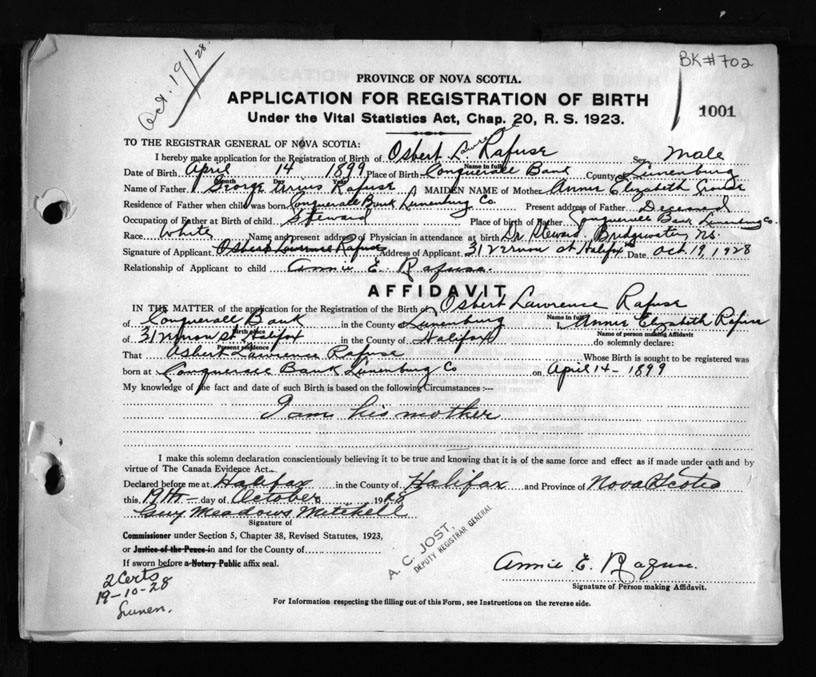 Oct. 19/28
BK#702
PROVINCE OF NOVA SCOTIA.
APPLICATION FOR REGISTRATION OF BIRTH
1001
Under the Vital Statistics Act, Chap. 20, R. S. 1923.
TO THE REGISTRAR GENERAL OF NOVA SCOTIA:
I hereby make application for the Registration of Birth of Osbert Lawrence Rafuse Name in full Sex Male
Date of Birth April 14 1899 Place of Birth Conquerall Bank County Lunenburg
Name of Father George Rafuse MAIDEN NAME of Mother Annie Elizabeth
Residence of Father when child was born Conquerall Bank Lunenburg Co Present address of Father Deceased
Occupation of Father at Birth of child Steward Place of birth of Father Conquerall Bank Lunenburg Co.
Race White Name and present address of Physician in attendance at birth Dr Steward. Bridgewater, N.S.
Signature of Applicant Osbert Lawrence Rafuse Address of Applicant 31 st Halifax Date Oct. 19, 1928
Relationship of Applicant to child Annie E. Rafuse.
AFFIDAVIT
IN THE MATTER of the application for the Registration of the Birth of Osbert Lawrence Rafuse
Name in full
of Conquerall Bank in the County of Lunenburg I, Annie Elizabeth Rafuse
Birth place Name of person making Affidavit
of 31 st Halifax in the County of Halifax do solemnly declare:
Present residence
That Osbert Lawrence Rafuse Whose Birth is sought to be registered was
born at Conquerall Bank Lunenburg Co on April 14 - 1899
My knowledge of the fact and date of such Birth is based on the following Circumstances :—
I am his mother
I make this solemn declaration conscientiously believing it to be true and knowing that it is of the same force and effect as if made under oath and by
virtue of The Canada Evidence Act.
Declared before me at Halifax in the County of Halifax and Province of Nova Scotia
this 19th day of October 1928
Guy Meadows Mitchell
Signature of
Commissioner under Section 5, Chapter 38, Revised Statutes, 1923,
or Justice of the Peace in and for the County of
If sworn before a Notary Public affix seal.
A. C. JOST,
DEPUTY REGISTRAR GENERAL
Annie E. Rafuse.
Signature of Person making Affidavit.
2 Certs
19-10-28
Lunen.
For Information respecting the filling out of this Form, see Instructions on the reverse side.